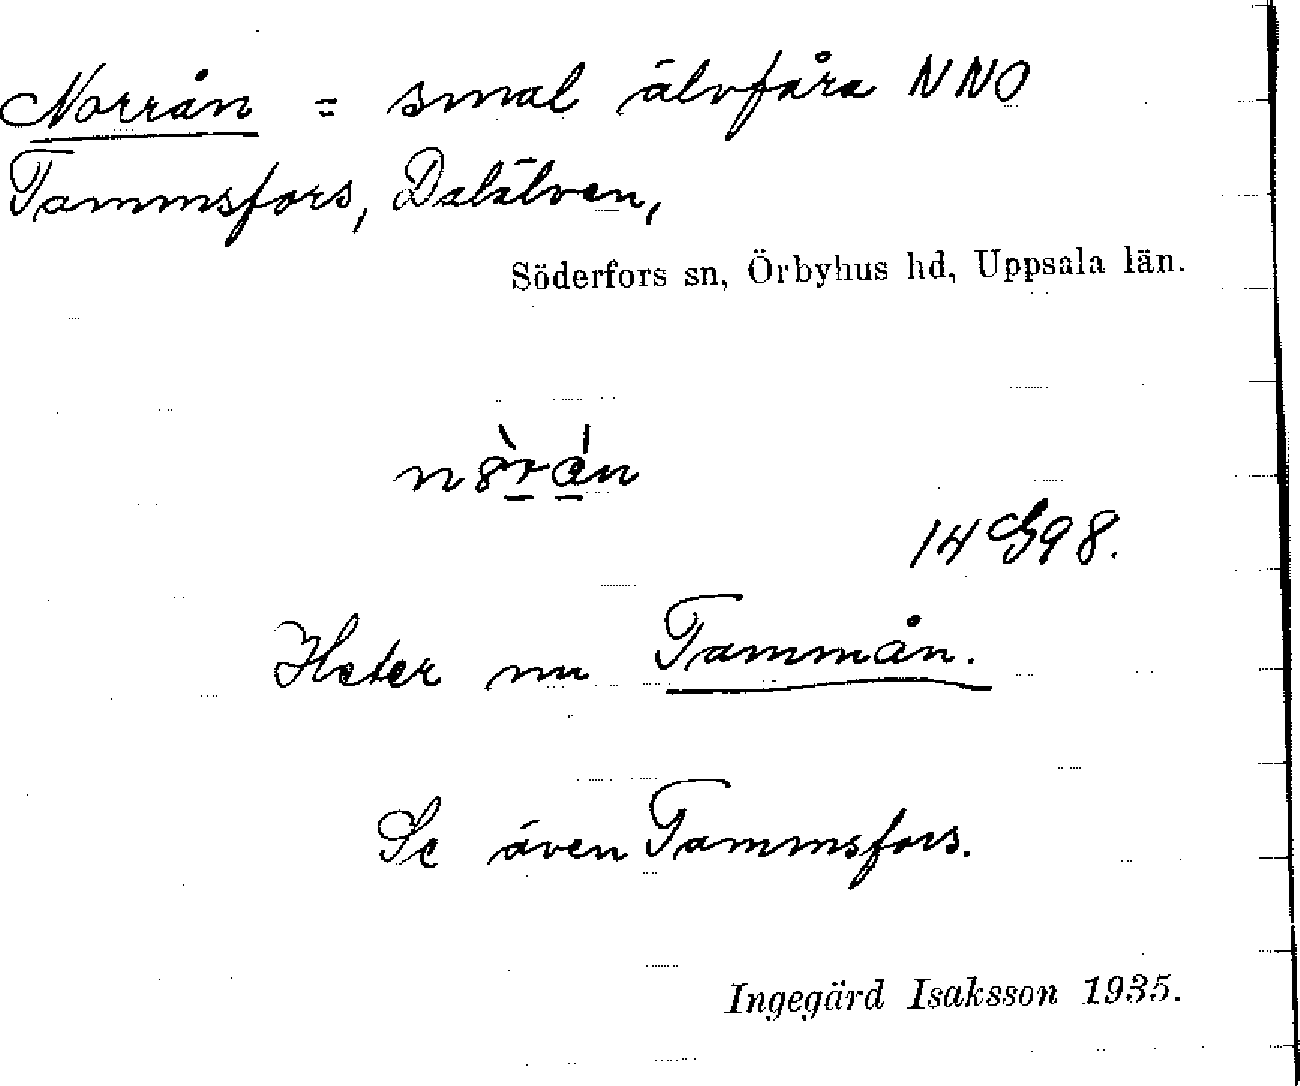 Norrån = smal älvfåra NNO
Tammsfors, Dalälven,
Söderfors sn, Örbyhus hd, Uppsala län.
14 G 98.
Heter nu Tammån.
Se även Tammsfors.
Ingegärd Isaksson 1935.